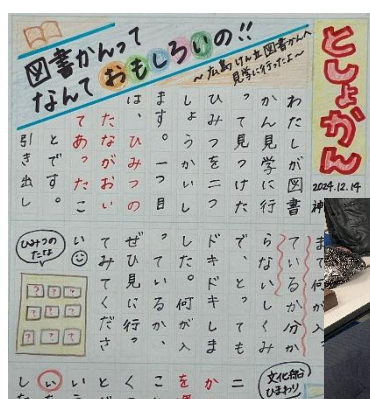 としょかん
2024.12.14
図書かんって
なんておもしろいの!!
〜広島けん立図書かんへ
見学に行ったよ〜
わたしが図書
かん見学に行
って見つけた
ひみつを二つ
しょうかいし
ます。一つ目
は、ひみつの
たながおい
てあったこ
とです。
引き出し
まで何が入
ているか分か
らないしくみ
で、とっても
ドキドキしま
した。何が入
っているか、
ぜひ見に行っ
てみてくださ
い
ひみつの
たな
? ? ?
? ? ?
? ? ?
ひまわり